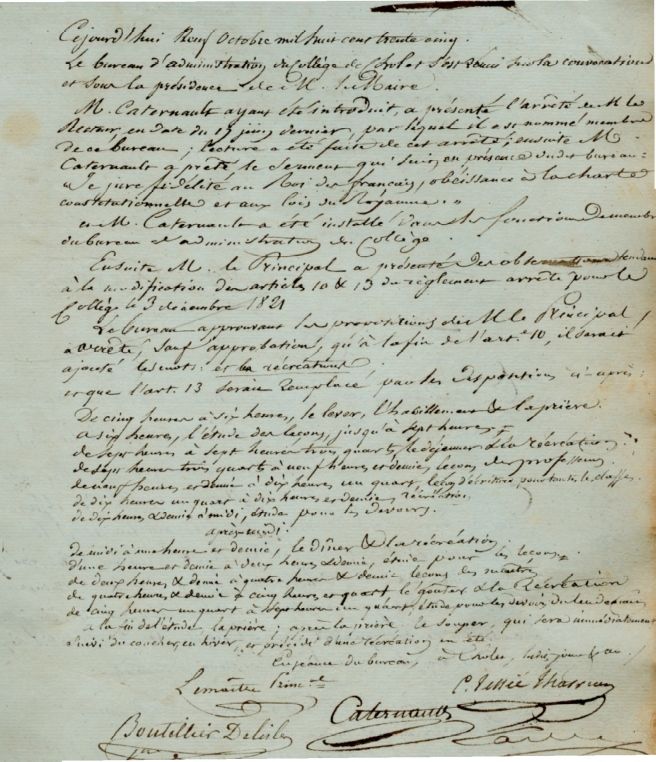 Cejourd'hui Neuf Octobre mil huit cent trente cinq.
Le bureau d'administration du Collège de Cholet s'est réuni sur la convocation
et sous la présidence de M. le Maire.
M. Caternault ayant été introduit, a présenté l'arrêté de M. le
Recteur, en date du 19 juin dernier, par lequel il est nommé membre
de ce bureau ; lecture a été faite de cet arrêté ; ensuite M.
Caternault a prêté le Serment qui suit, en présence dudit bureau :
"Je jure fidélité au Roi des français, obéissance à la charte
constitutionnelle et aux lois du Royaume. "
et M. Caternault a été installé dans les fonctions de membre
du bureau d'administration du Collège.
Ensuite M. le Principal a présenté des tendant
à la modification des articles 10 & 13 du règlement arrêté pour le
Collège le 3 décembre 1821
Le bureau approuvant les propositions de M. le Principal
a arrêté, sauf approbation, qu'à la fin de l'art. 10, il serait
ajouté les mots : et les récréations
et que l'art. 13 serait remplacé par les dispositions ci-après :
De cinq heures à six heures, le lever, l'habillement & la prière.
à six heures, l'étude des leçons, jusqu'à sept heures
de sept heures à sept heures trois quarts, le déjeuner & la récréation
de sept heures trois quarts à neuf heures et demie, leçons des professeurs
de neuf heures et demie à dix heures un quart, leçon d'écriture pour toutes les classes.
de dix heures un quart à dix heures et demie, récréation
de dix heures & demie à midi, étude pour les devoirs.
après midi
de midi à une heure et demie, le dîner & la récréation.
d'une heure et demie à deux heures & demie, étude pour les leçons
de deux heures & demie à quatre heures & demie leçons des maîtres
de quatre heures & demie à cinq heures et quart le goûter & la Récréation
de cinq heures un quart à sept heures un quart, étude pour les devoirs du lendemain
à la fin de l'étude la prière ; après la prière le souper, qui sera immédiatement
suivi du coucher, en hiver, et précédé d'une récréation en été
En séance du bureau, à Cholet, lesdits jour & an
Lemaître Princ.al
Boutillier Delisle
Caternault